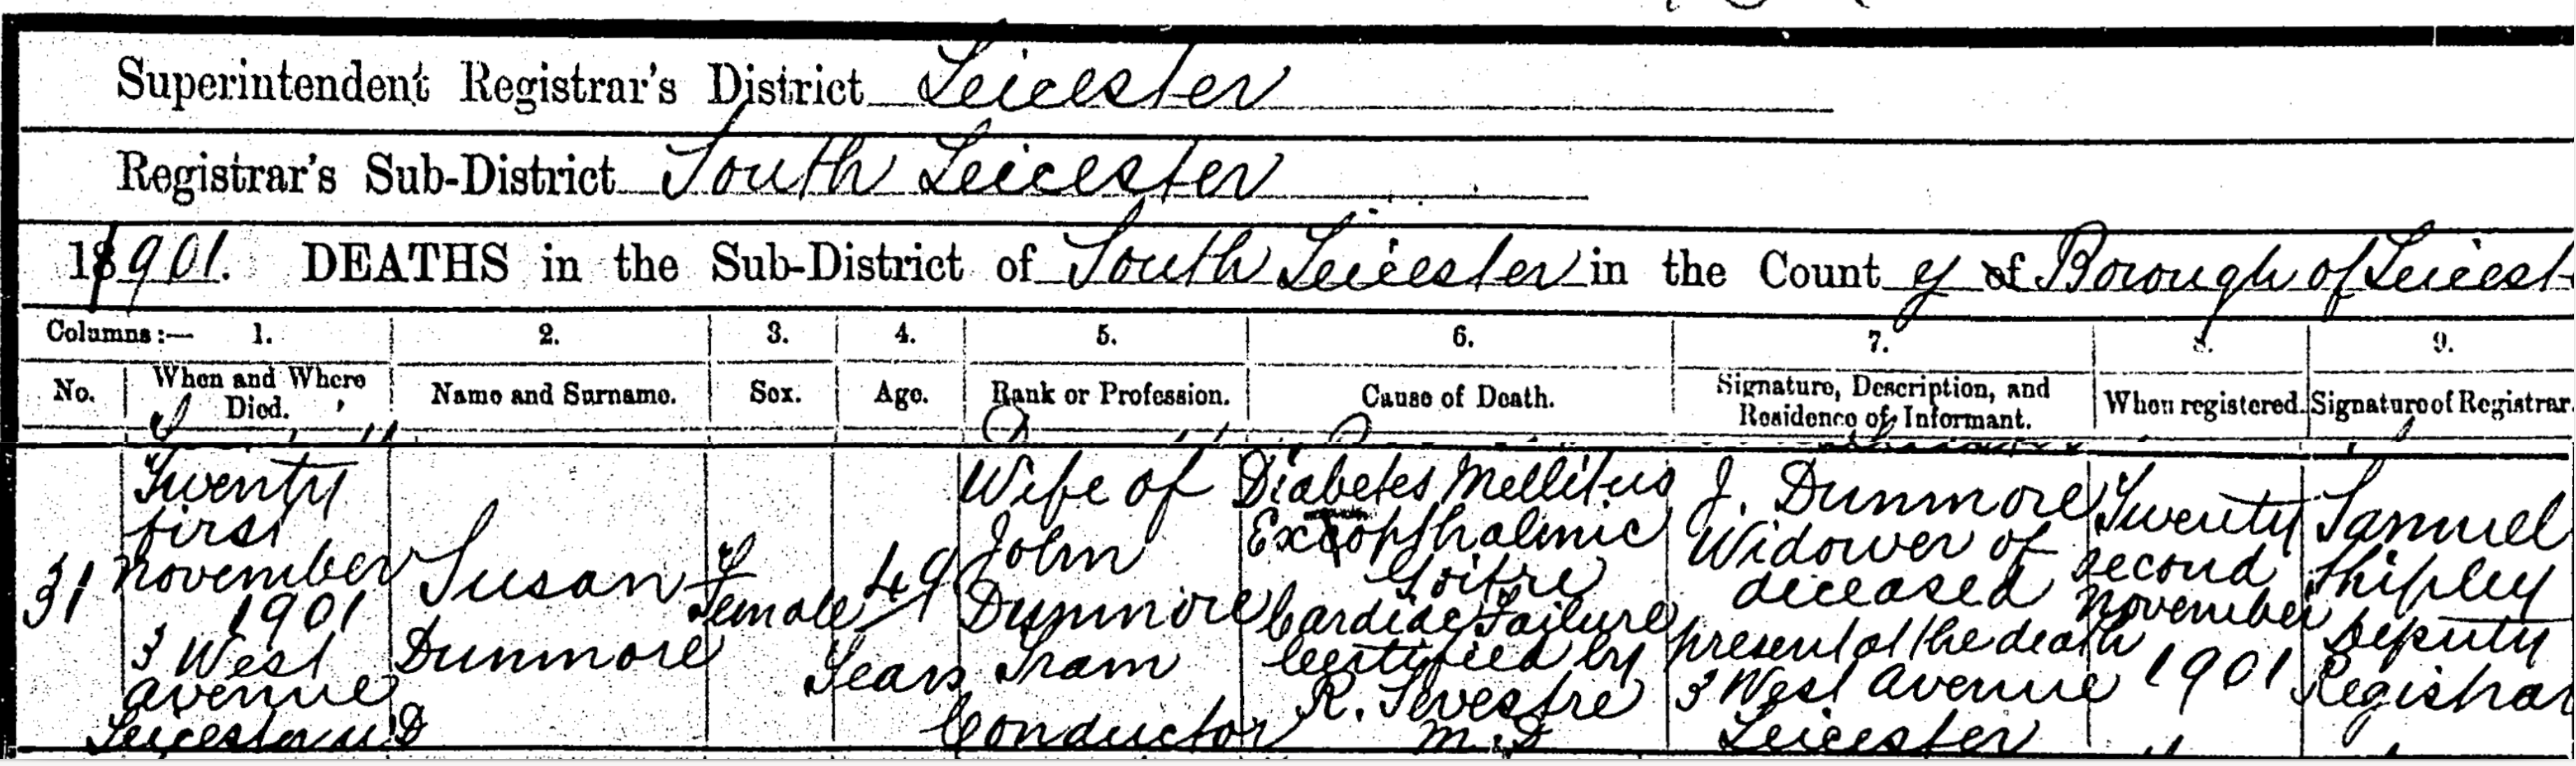 Superintendent Registrar's District Leicester
Registrar's Sub-District South Leicester
18901. DEATHS in the Sub-District of South Leicester in the County of Borough of Leicest
Columns:— 1. 2. 3. 4. 5. 6. 7. 8. 9.
No. When and Where Died. Name and Surname. Sex. Age. Rank or Profession. Cause of Death. Signature, Description, and Residence of Informant. When registered. Signature of Registrar.
31
Twenty
first
November
1901
3 West
Avenue
Leicester U D
Susan
Dunmore
Female
49
Years
Wife of
John
Dunmore
Tram
Conductor
Diabetes Mellitus
Exophthalmic
Goitre
Cardiac Failure
Certified by
R. Sevestre
M.D
J. Dunmore
Widower of
deceased
present at the death
3 West Avenue
Leicester
Twenty
second
November
1901
Samuel
Shipley
Deputy
Registrar